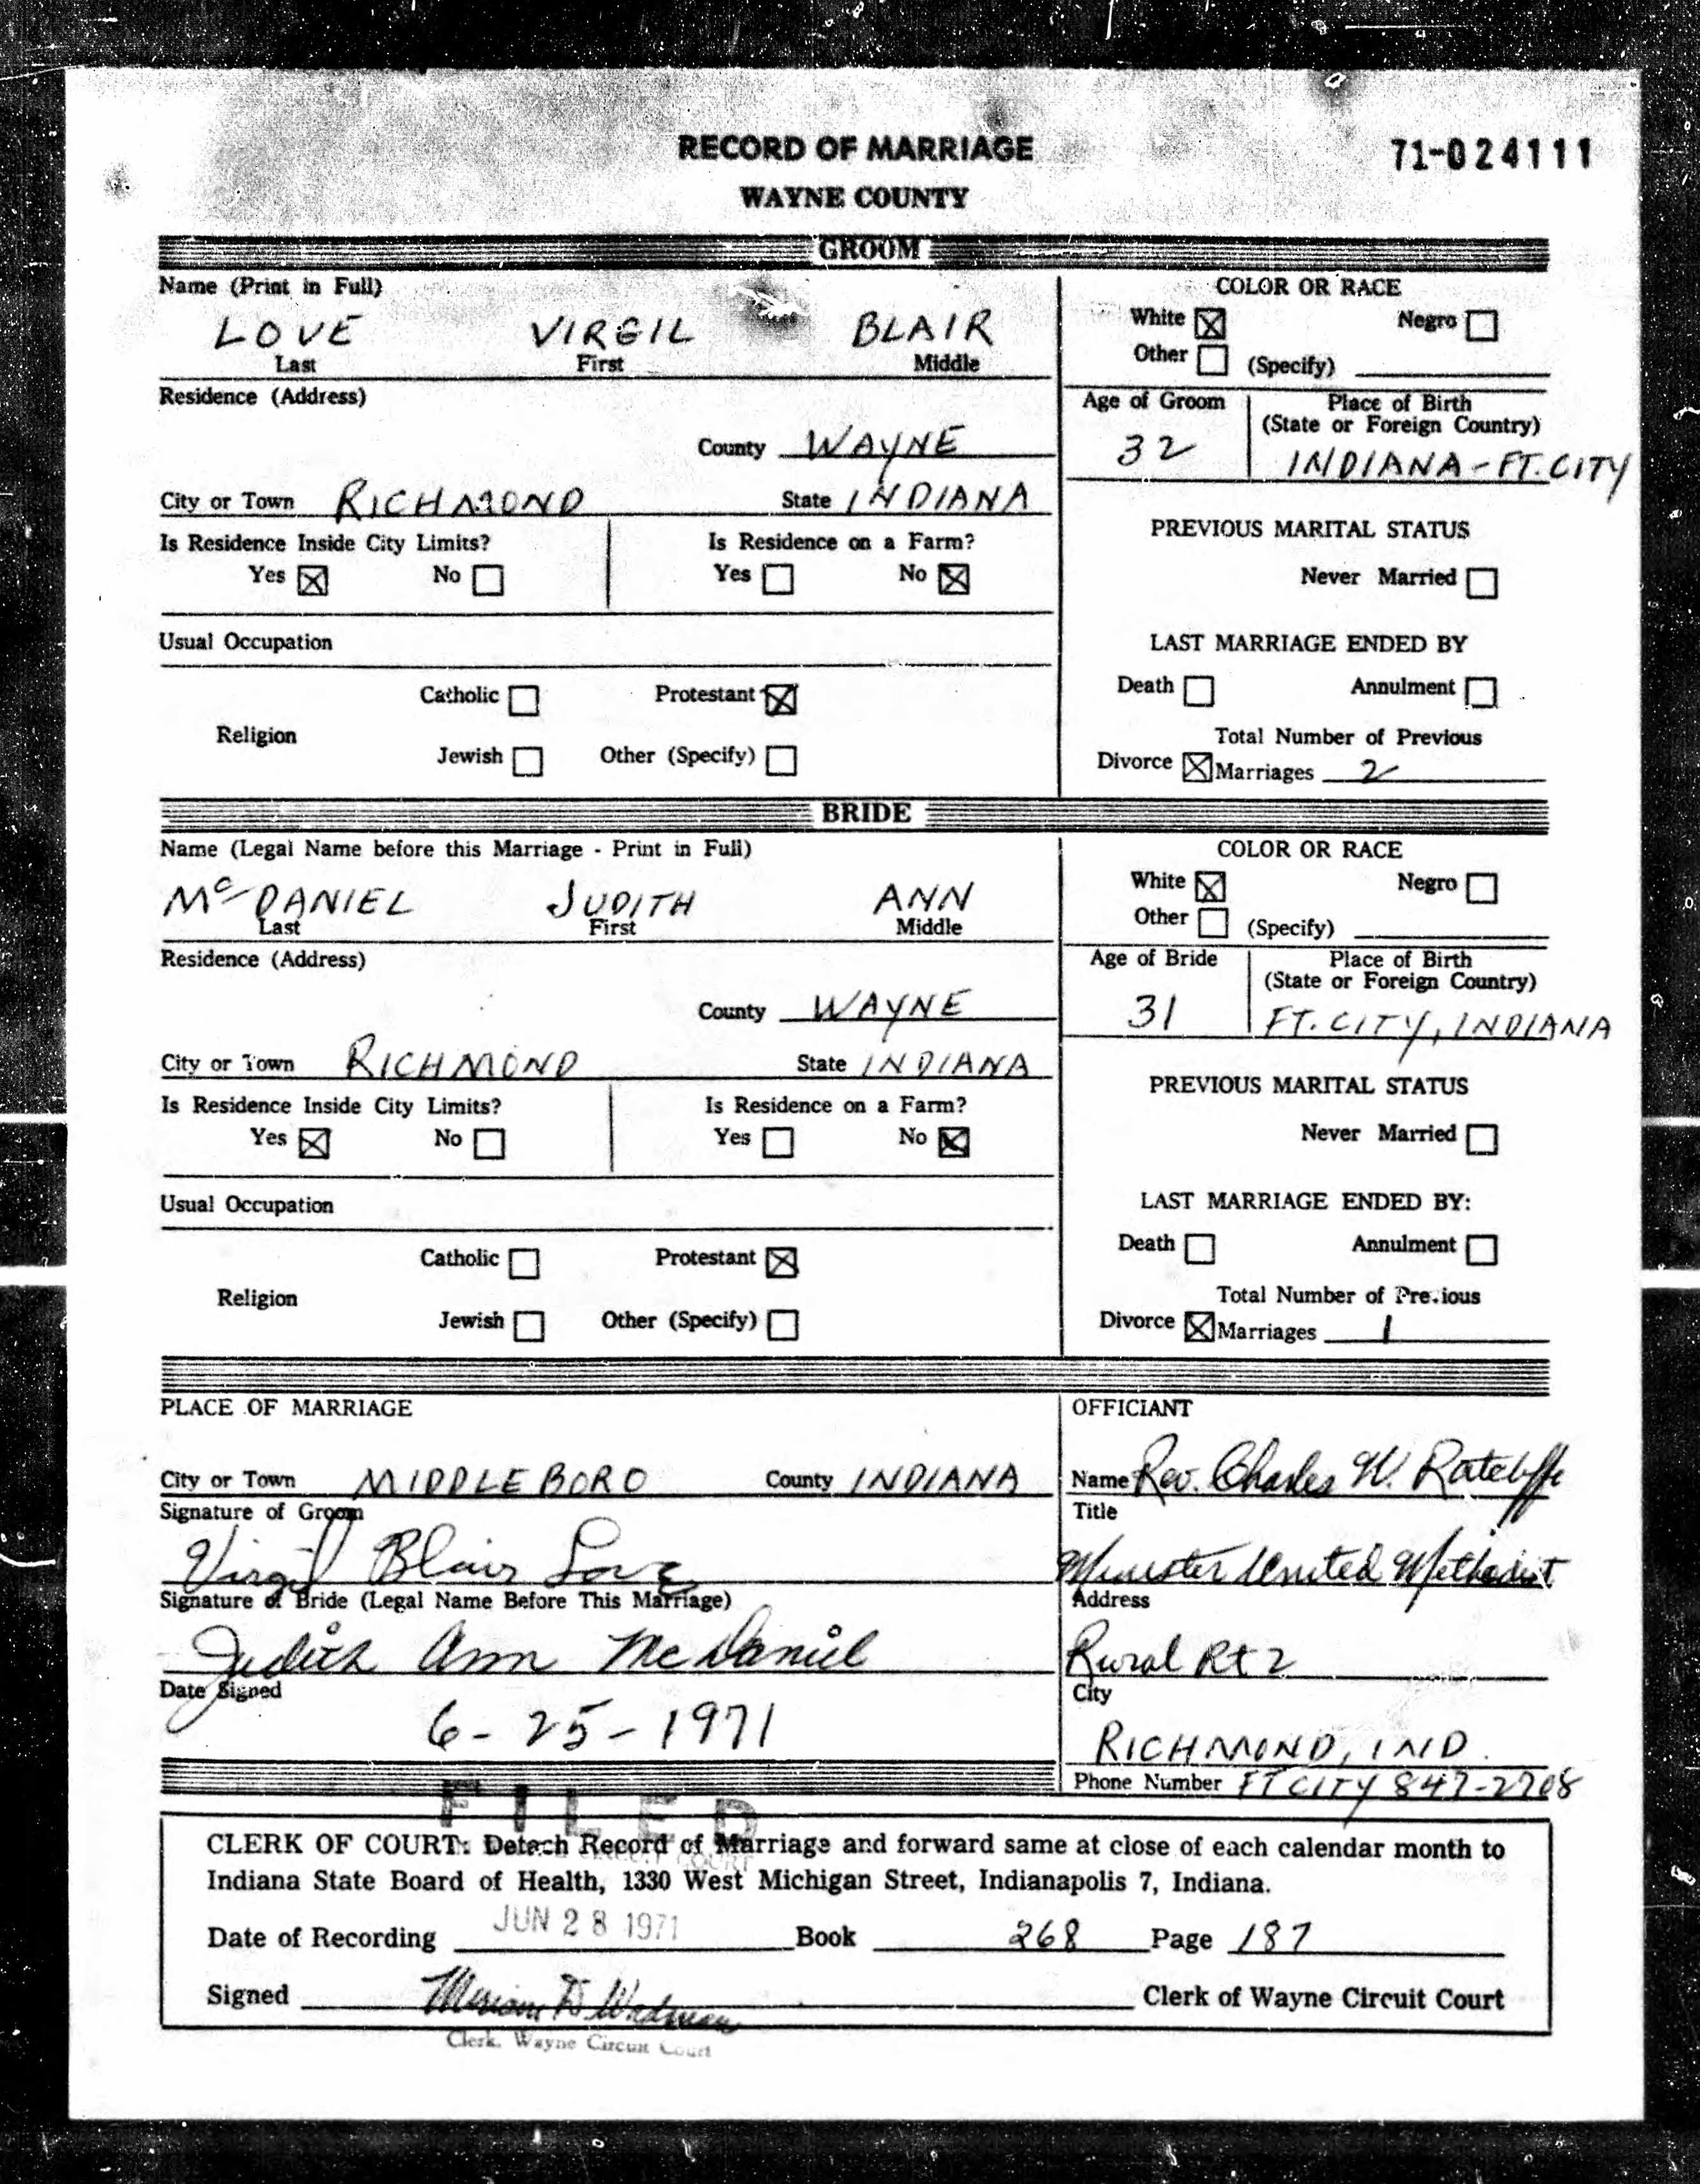 RECORD OF MARRIAGE
71-024111
WAYNE COUNTY
GROOM
Name (Print in Full)
LOVE VIRGIL BLAIR
Last First Middle
COLOR OR RACE
White ☒ Negro ☐
Other ☐ (Specify)
Residence (Address)
County WAYNE
City or Town RICHMOND State INDIANA
Age of Groom
32
Place of Birth
(State or Foreign Country)
INDIANA-FT. CITY
Is Residence Inside City Limits?
Yes ☒ No ☐
Is Residence on a Farm?
Yes ☐ No ☒
PREVIOUS MARITAL STATUS
Never Married ☐
Usual Occupation
LAST MARRIAGE ENDED BY
Death ☐ Annulment ☐
Religion
Catholic ☐ Protestant ☒
Jewish ☐ Other (Specify) ☐
Total Number of Previous
Divorce ☒ Marriages 2
BRIDE
Name (Legal Name before this Marriage - Print in Full)
McDANIEL JUDITH ANN
Last First Middle
COLOR OR RACE
White ☒ Negro ☐
Other ☐ (Specify)
Residence (Address)
County WAYNE
City or Town RICHMOND State INDIANA
Age of Bride
31
Place of Birth
(State or Foreign Country)
FT. CITY, INDIANA
Is Residence Inside City Limits?
Yes ☒ No ☐
Is Residence on a Farm?
Yes ☐ No ☒
PREVIOUS MARITAL STATUS
Never Married ☐
Usual Occupation
LAST MARRIAGE ENDED BY:
Death ☐ Annulment ☐
Religion
Catholic ☐ Protestant ☒
Jewish ☐ Other (Specify) ☐
Total Number of Previous
Divorce ☒ Marriages 1
PLACE OF MARRIAGE
City or Town MIDDLEBORO County INDIANA
Signature of Groom
Virgil Blair Love
Signature of Bride (Legal Name Before This Marriage)
Judith Ann McDaniel
Date Signed
6-25-1971
OFFICIANT
Name Rev. Charles W. Ratcliffe
Title
Minister United Methodist
Address
Rural Rt 2
City
RICHMOND, IND.
Phone Number FT CITY 847-2708
FILED
CLERK OF COURT: Detach Record of Marriage and forward same at close of each calendar month to
Indiana State Board of Health, 1330 West Michigan Street, Indianapolis 7, Indiana.
Date of Recording JUN 28 1971 Book 268 Page 187
Signed Clerk of Wayne Circuit Court
Clerk, Wayne Circuit Court